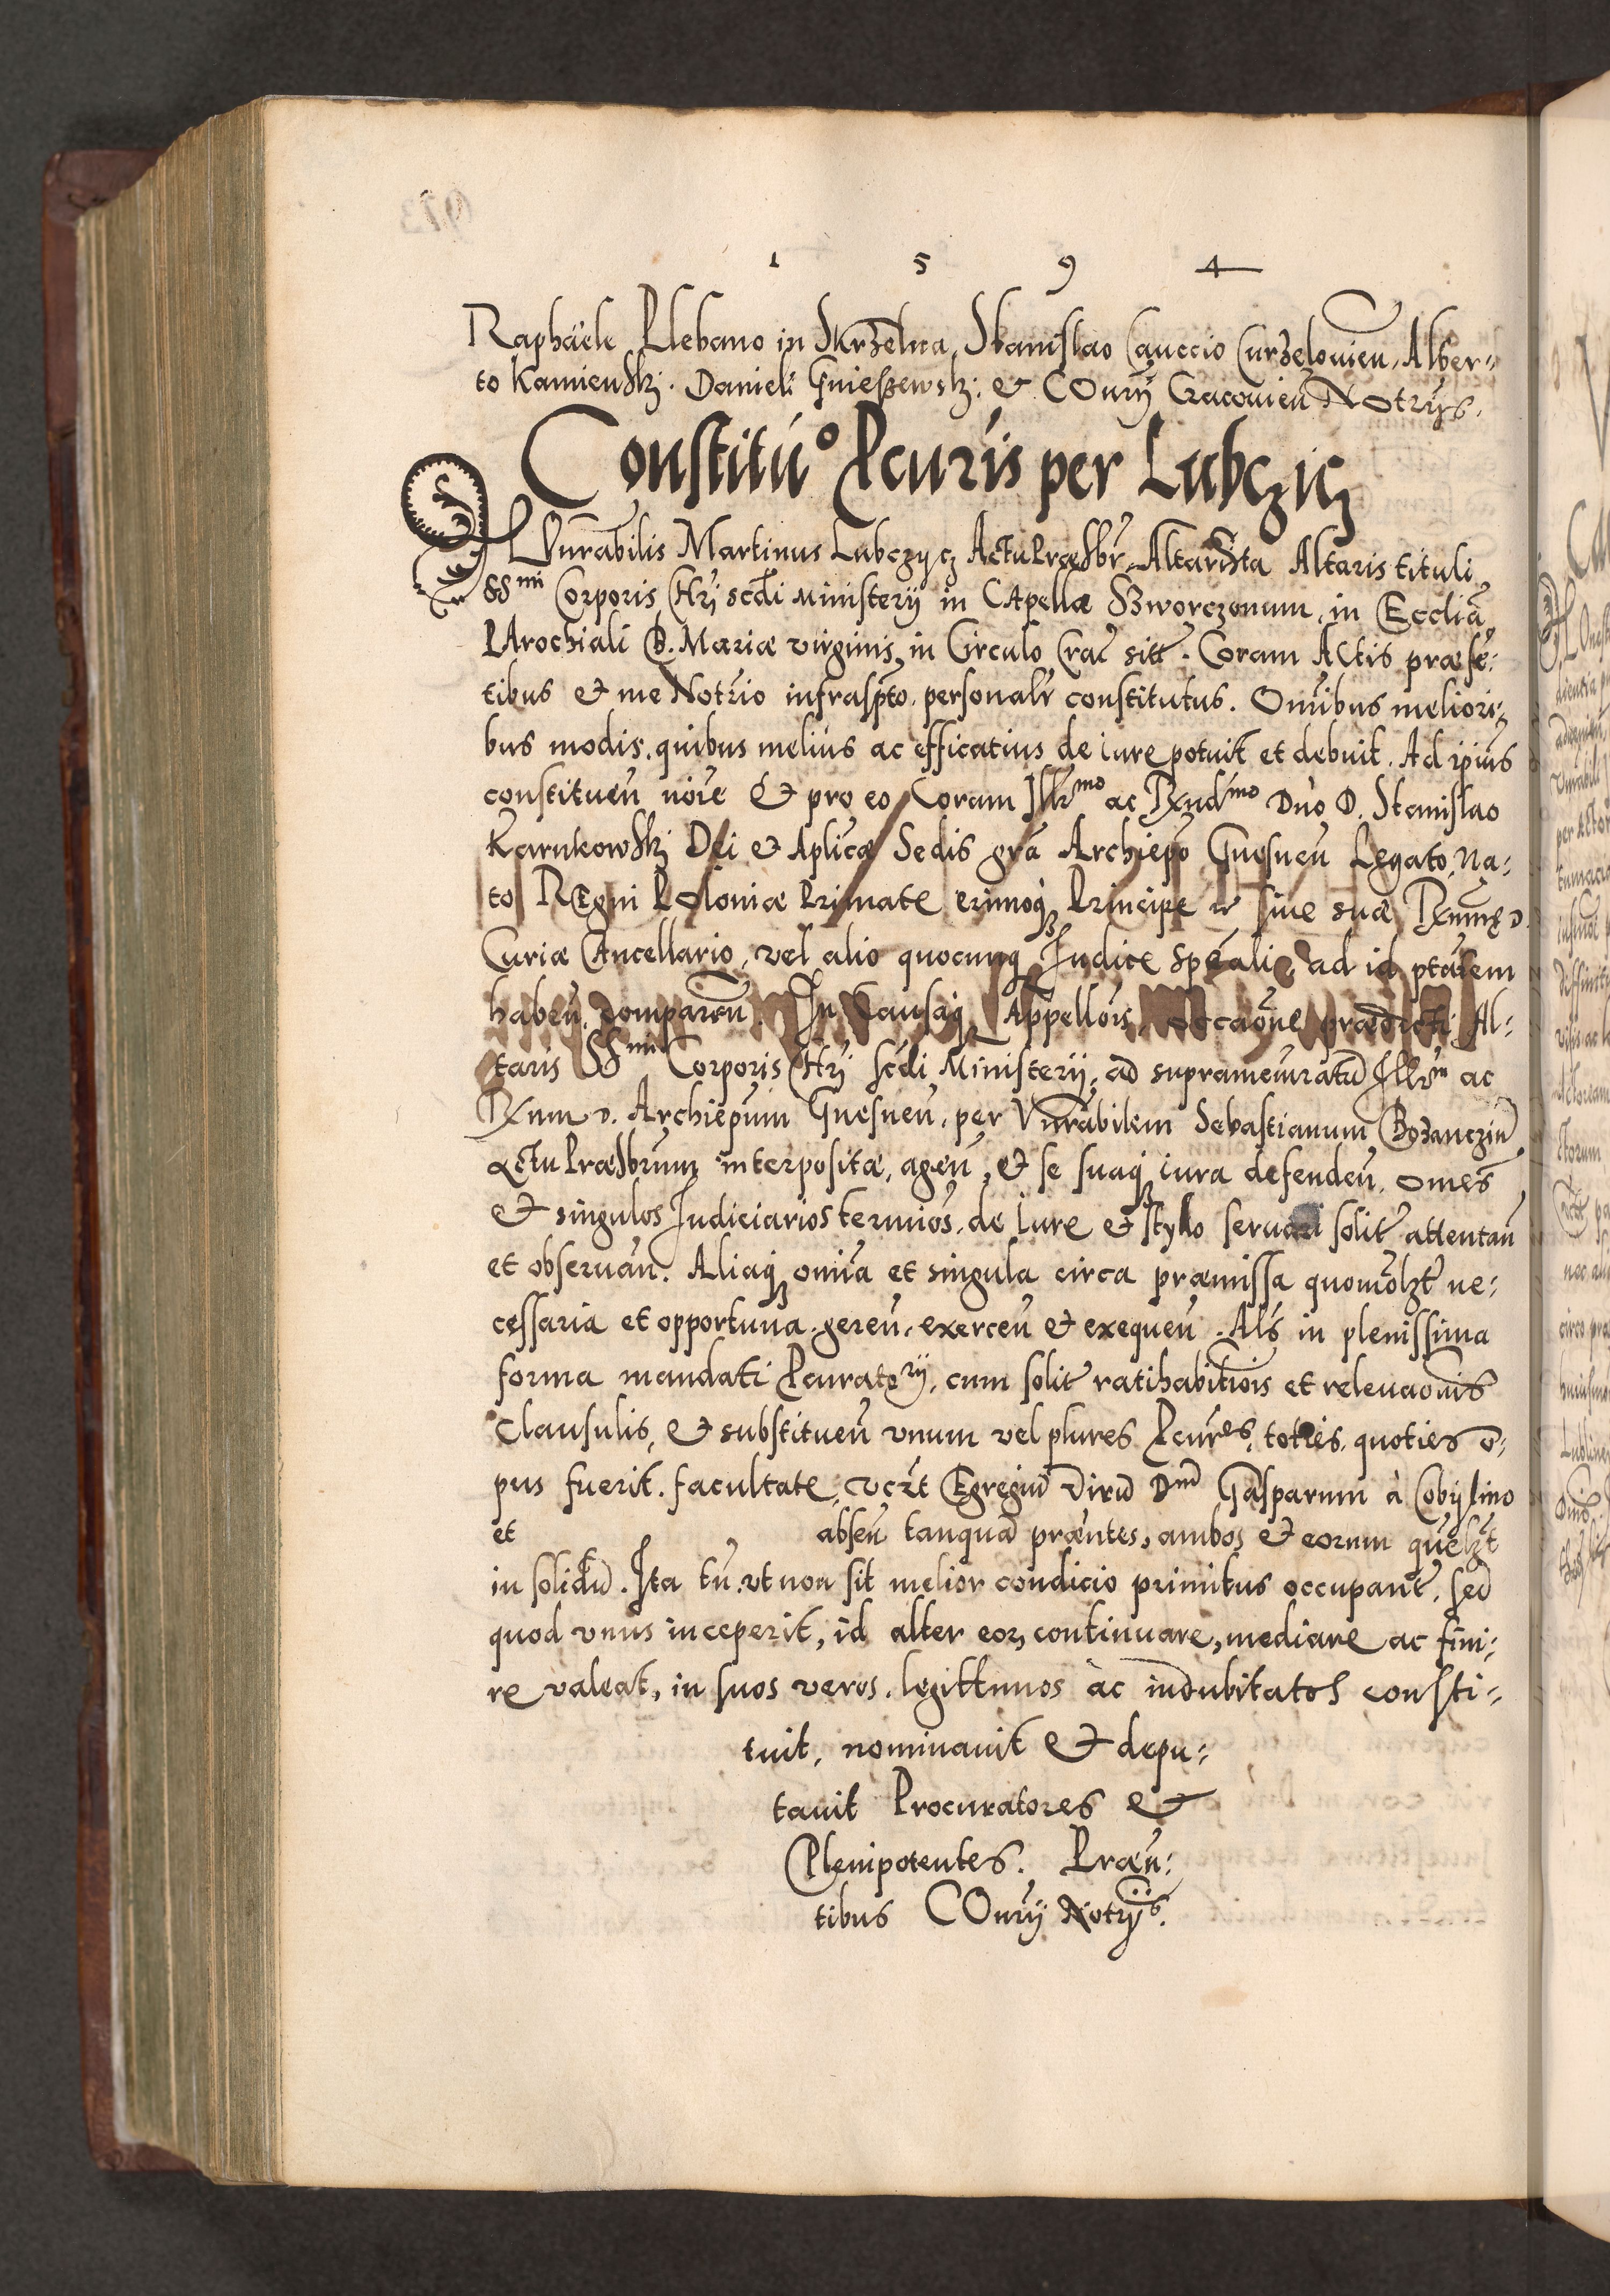 1 5 9 4
Raphaele Plebano in Skrzelna, Stanislao Cauccio Curzelouien̄, Alber-
to Kamienskj. Danieli Gnieszewskj: et COnrȳ Cracouien̄ Notrijs.
Constitu͞o Pcuris per Lubczicz
VEn̄rabilis Martinus Lubczycz ActuPræsbr̄, Altarista Altaris tituli
SSmi Corporis Chrī scd̄i Ministerij in CApella Szworczonum, in Eccliā
PArochiali B. Mariæ virginis, in Circulo Crac̄ sitt̄. Coram Actis præsē-
tibus et me Notrio infrasp̄to personalr̄ constitutus. Om̄ibus meliori-
bus modis, quibus melius ac efficatius de iure potuit et debuit. Ad ip̄ius
constituen̄ noīe et pro eo Coram Illrmo ac Rx̄ndmo Dn̄o D. Stanislao
Karnkowskj Dei et Aplicæ Sedis grā Archiepo Gnesnen̄ Legato, Na-
to REgni POloniæ Primate primoq; Principe etc siue suæ Rxmnę D.
Curiæ CAncellario, vel alio quocunq; Iudice sp̄eali, ad id p̄tātem
haben̄ comparen̄. In Causaq; Appellōis, occāone prædicti Al-
taris SSmi Corporis Chrī scd̄i Ministerij, ad sup̄rameuratū Illrm ac
Rxnm D. Archiepum Gnesnen̄, per Vn̄rabilem Sebastianum Bozanczin
actu Præsbrum interpositæ, agen̄, et se suaq; iura defenden̄, om̄es
et singulos Iudiciarios termīos, de Iure et stylo seruari solit̄ attentan̄
et obseruan̄. Aliaq; om̄ia et singula circa præmissa quomōlzt ne-
cessaria et opportuna, geren̄, exercen̄ et exequen̄. Al̄s in plenissima
forma mandati Pcuratorij, cum solit̄ ratihabit̄iōis et releuaōnis
Clausulis, et substituen̄ vnum vel plures Pcurēs, toties quoties o-
pus fuerit. facultate, vczt Egregiū Virū Dnū Gasparum à Cobylino
et absen̄ tanquā præn̄tes, ambos et eorum quēlzt
in solidū. Ita tn̄ vt non sit melior condicio primitus occupant̄, sed
quod vnus inceperit, id alter eorz continuare, mediare ac fini-
re valeat, in suos veros, legittimos ac indubitatos consti-
tuit, nominauit et depu-
tauit Procuratores et
Plenipotentes. Præn̄-
tibus COnrȳ Notrijs.